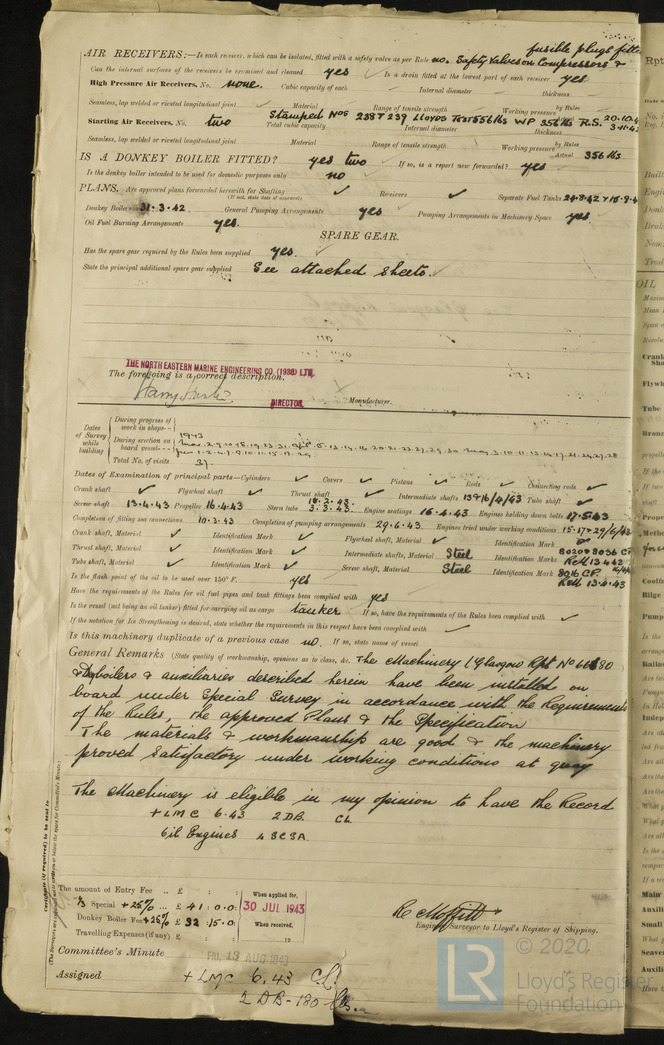 fusible plugs fitte
AIR RECEIVERS:—Is each receiver, which can be isolated, fitted with a safety valve as per Rule no. Safety Valves on Compressors &
Can the internal surfaces of the receivers be examined and cleaned yes Is a drain fitted at the lowest part of each receiver yes
High Pressure Air Receivers, No. none. Cubic capacity of each Internal diameter thickness
Seamless, lap welded or riveted longitudinal joint Material Range of tensile strength Working pressure by Rules
Starting Air Receivers, No. two Stamped Nos 238 & 239 Lloyds Test 556 lbs WP 356 lbs R.S. 20.10.4
Total cubic capacity Internal diameter thickness 3.11.42
Seamless, lap welded or riveted longitudinal joint Material Range of tensile strength Working pressure by Rules Actual 356 lbs
IS A DONKEY BOILER FITTED? yes two If so, is a report now forwarded? yes
Is the donkey boiler intended to be used for domestic purposes only no
PLANS. Are approved plans forwarded herewith for Shafting ✓ Receivers ✓ Separate Fuel Tanks 24.8.42 & 15.9.4
(If not, state date of approval)
Donkey Boilers 31.3.42 General Pumping Arrangements yes Pumping Arrangements in Machinery Space yes.
Oil Fuel Burning Arrangements yes.
SPARE GEAR.
Has the spare gear required by the Rules been supplied yes.
State the principal additional spare gear supplied See attached sheets.
THE NORTH EASTERN MARINE ENGINEERING CO. (1938) LTD.
The foregoing is a correct description,
DIRECTOR. Manufacturer.
Dates of Survey while building
During progress of work in shops--
During erection on board vessel--- 1943
Total No. of visits 37.
Dates of Examination of principal parts—Cylinders ✓ Covers ✓ Pistons ✓ Rods ✓ Connecting rods ✓
Crank shaft ✓ Flywheel shaft ✓ Thrust shaft ✓ Intermediate shafts 13 & 16/4/43 Tube shaft ✓
Screw shaft 13.4.43 Propeller 16.4.43 Stern tube 3.3.43. Engine seatings 16.4.43 Engines holding down bolts 17.5.43
Completion of fitting sea connections 10.3.43 Completion of pumping arrangements 29.6.43. Engines tried under working conditions 15.17 & 29/6/43
Crank shaft, Material ✓ Identification Mark ✓ Flywheel shaft, Material ✓ Identification Mark ✓
Thrust shaft, Material ✓ Identification Mark ✓ Intermediate shafts, Material Steel Identification Marks 8020 & 8036 CF
Tube shaft, Material ✓ Identification Mark ✓ Screw shaft, Material Steel Identification Mark 8016 CF.
Is the flash point of the oil to be used over 150° F. yes
Have the requirements of the Rules for oil fuel pipes and tank fittings been complied with yes
Is the vessel (not being an oil tanker) fitted for carrying oil as cargo tanker If so, have the requirements of the Rules been complied with ✓
If the notation for Ice Strengthening is desired, state whether the requirements in this respect have been complied with ✓
Is this machinery duplicate of a previous case no. If so, state name of vessel
General Remarks (State quality of workmanship, opinions as to class, &c. The Machinery (Glasgow Rpt No 66680)
boilers & auxiliaries described herein have been installed on
board under Special Survey in accordance with the Requirements
of the Rules, the approved Plans & the Specification
The materials & workmanship are good & the machinery
proved satisfactory under working conditions at quay
The Machinery is eligible in my opinion to have the Record
+ LMC 6.43 2 DB. CL
Oil Engines 4 SCSA.
Certificate (if required) to be sent to
(The Surveyors are requested not to write on or below the space for Committee's Minute.)
The amount of Entry Fee .. £ : :
⅓ Special +25% ... £ 41 : 0 : 0
Donkey Boiler Fee +25% £ 32 : 15 : 0
Travelling Expenses (if any) £ : :
When applied for,
30 JUL 1943
When received,
19
R. C. Moffitt
Engineer Surveyor to Lloyd's Register of Shipping.
Committee's Minute FRI. 13 AUG 1943
Assigned + LMC 6.43 CL.
2 DB - 180 lbs.
LR
© 2020
Lloyd's Register
Foundation